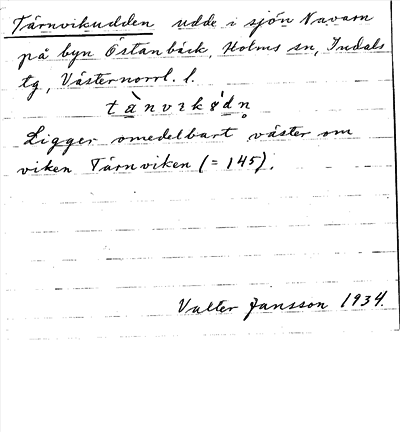 Tärnvikudden udde i sjön Navarn
på byn Östanbäck, Holms sn, Indals
tg, Västernorrl. l.
Ligger omedelbart väster om
viken Tärnviken (= 145).
Valter Jansson 1934.